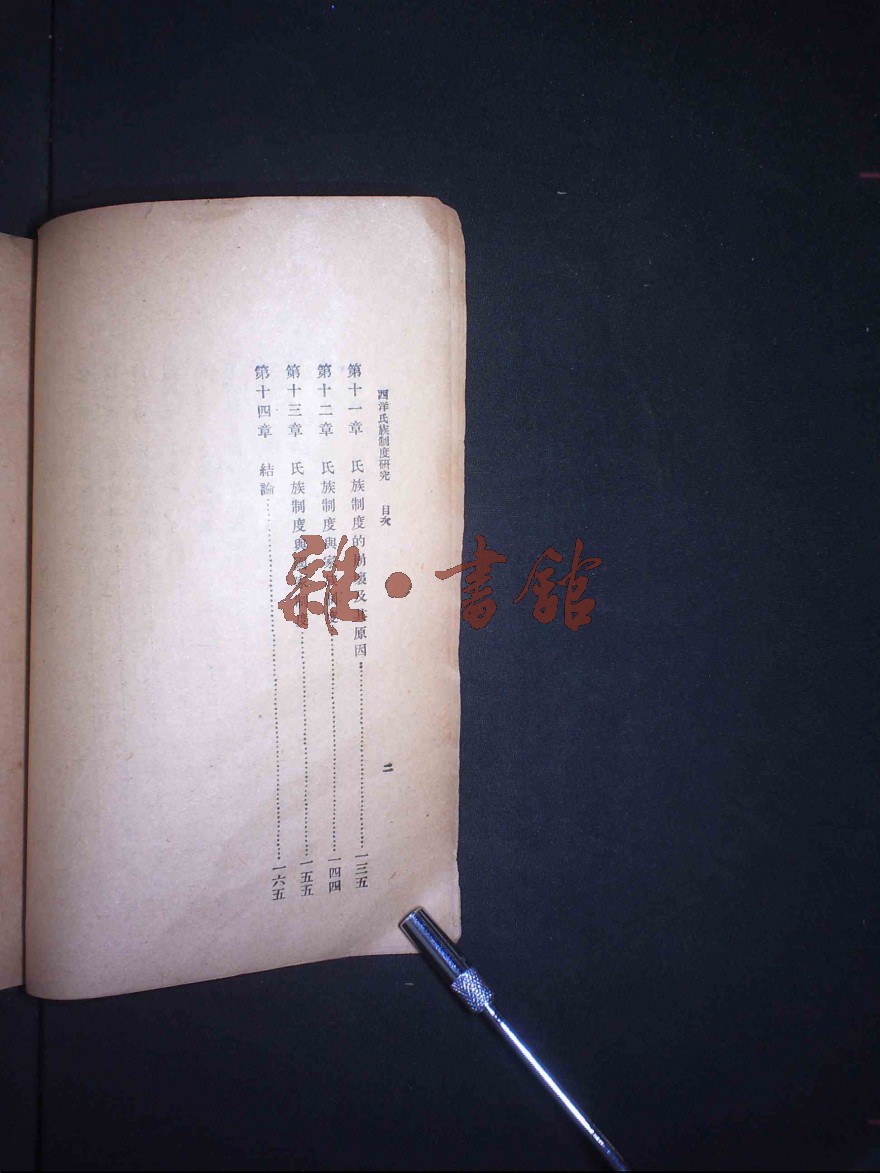 西洋氏族制度研究 目次
二
第十一章 氏族制度的崩壞及其原因……一三五
第十二章 氏族制度與家族制度……一四四
第十三章 氏族制度與……一五五
第十四章 結論……一六五
雜·書館